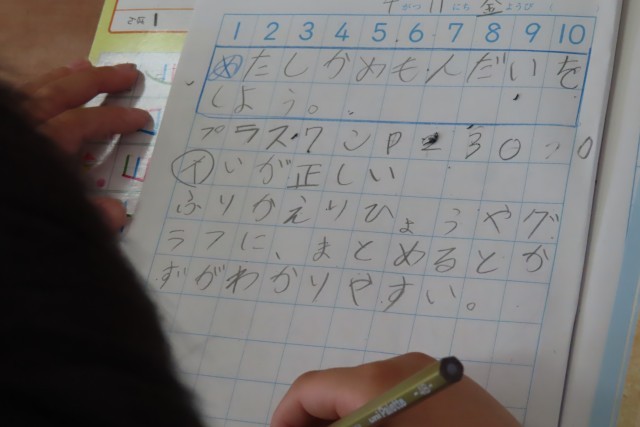 十がつ11にち金ようび
1 2 3 4 5 6 7 8 9 10
めたしかめもんだいを
しよう。
プラス・ワンP230
イいが正しい
ふりかえりひょうやグ
ラフに、まとめるとか
ずがわかりやすい。